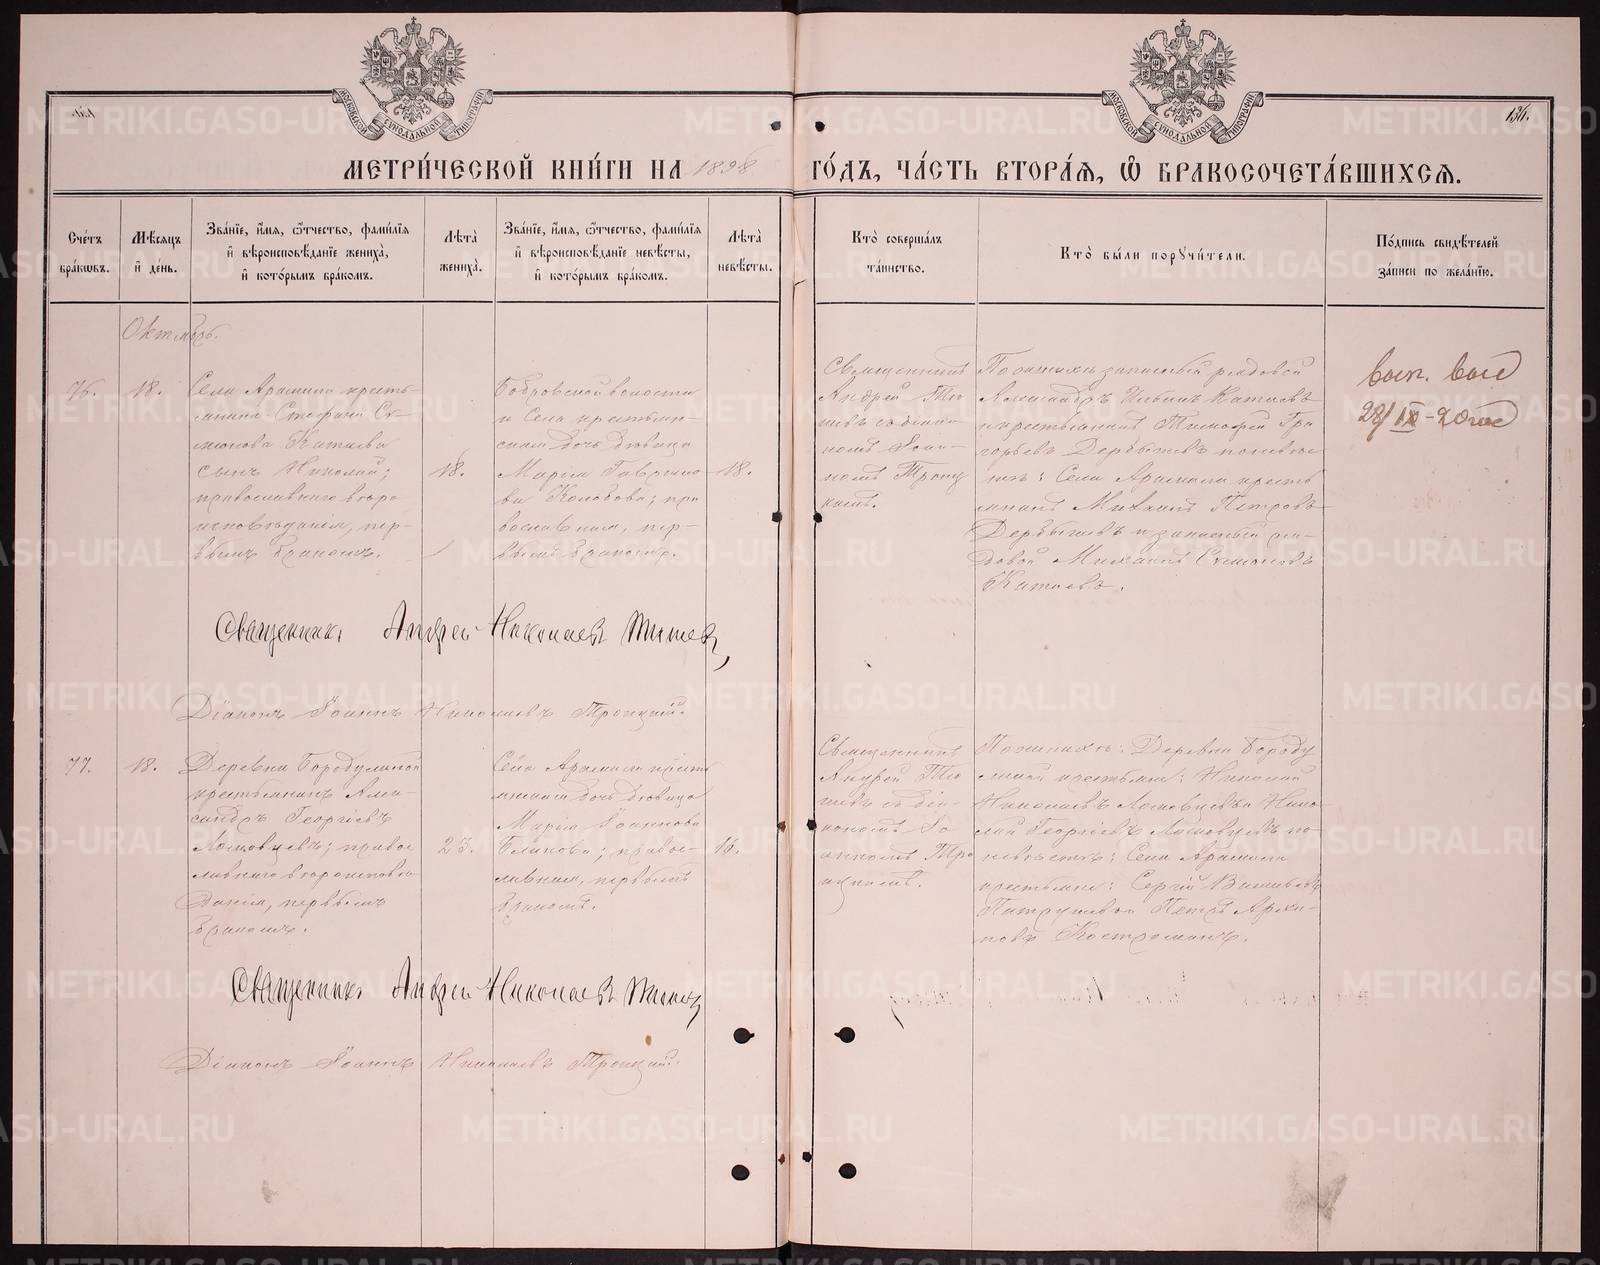 МОСКОВСКОЙ СѴНОДАЛЬНОЙ ТИПОГРАФІИ
МОСКОВСКОЙ СѴНОДАЛЬНОЙ ТИПОГРАФІИ
131.
МЕТРИ́ЧЕСКОЙ КНИ́ГИ НА 1898 ГО́ДЪ, ЧА́СТЬ ВТОРА́Я, Ѡ БРАКОСОЧЕТА́ВШИХСЯ.
Сче́тъ
бра́кѡвъ.
Мѣ́сяцъ
и҆ де́нь.
Зва́нїе, и҆́мя, ѻ҆́тчество, фами́лїя
и҆ вѣроисповѣ́данїе жениха̀,
и҆ кото́рымъ бра́комъ.
Лѣ́та
жениха̀.
Зва́нїе, и҆́мя, ѻ҆́тчество, фами́лїя
и҆ вѣроисповѣ́данїе невѣ́сты,
и҆ кото́рымъ бра́комъ.
Лѣ́та
невѣ́сты.
Кто̀ соверша́лъ
та́инство.
Кто̀ бы́ли порꙋчи́тели.
По́дпись свидѣ́телей
за́писи по жела́нїю.
Октябрь.
76.
18.
Села Арамили кресть-
янина Стефана Си-
монова Катаева
сынъ Николай;
православнаго вѣро
исповѣданія, пер-
вымъ бракомъ.
18.
Бобровской волости
и Села крестьян-
ская дочь дѣвица
Марія Гаврило-
ва Колобова; пра
вославная, пер-
вымъ бракомъ.
18.
Священникъ
Андрей
съ діако
номъ Іоан-
номъ Троиц
кимъ.
По женихѣ запасный рядовой
Александръ Ильинъ Катаевъ
и крестьянинъ Тимофей Гри
горьевъ Дербышевъ по невѣс
тѣ: Села Арамили кресть
янинъ Михаилъ Петровъ
Дербышевъ и запасный ря-
довой Михаилъ Симоновъ
Катаевъ.
28/IX-20
Священникъ Андрей Николаевъ
Діаконъ Іоаннъ Николаевъ Троицкій.
77.
18.
Деревни Бородулиной
крестьянинъ Алек
сандръ Георгіевъ
Ломовцевъ; правос
лавнаго вѣроисповѣ
данія, первымъ
бракомъ.
23.
Села Арамили кресть
янская дочь дѣвица
Марія Іоаннова
Блинова; правос-
лавная, первымъ
бракомъ.
16.
Священникъ
Андрей
съ діа-
кономъ Іо
анномъ Тро
ицкимъ.
По женихѣ: Деревни Бороду
линой крестьяне: Николай
Николаевъ Ломовцевъ и Нико-
лай Георгіевъ Ломовцевъ по
невѣстѣ: Села Арамили
крестьяне: Сергѣй Васильевъ
Патрушевъ и Петръ Архи-
повъ Костроминъ.
Священникъ Андрей Николаевъ
Діаконъ Іоаннъ Николаевъ Троицкій.
METRIKI.GASO-URAL.RU